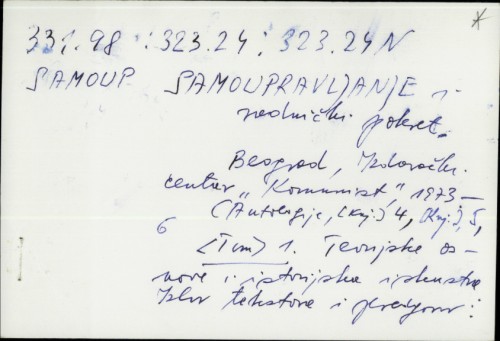 *
331.98 : 323.24 ; 323.24 N
SAMOUP. SAMOUPRAVLJANJE i
radnički pokret.
Beograd, Izdavački
centar "Komunist", 1973 —
(Antologije, [knj.] 4, [knj.], 5,
6
<Tom> 1. Teorijske os-
nove i istorijska iskustva
Izbor tekstova i predgovor :